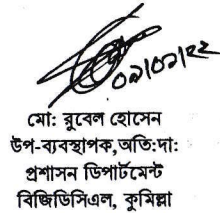 ০৯/০১/২২
মো: রুবেল হোসেন
উপ-ব্যবস্থাপক,অতি:দা:
প্রশাসন ডিপার্টমেন্ট
বিজিডিসিএল, কুমিল্লা